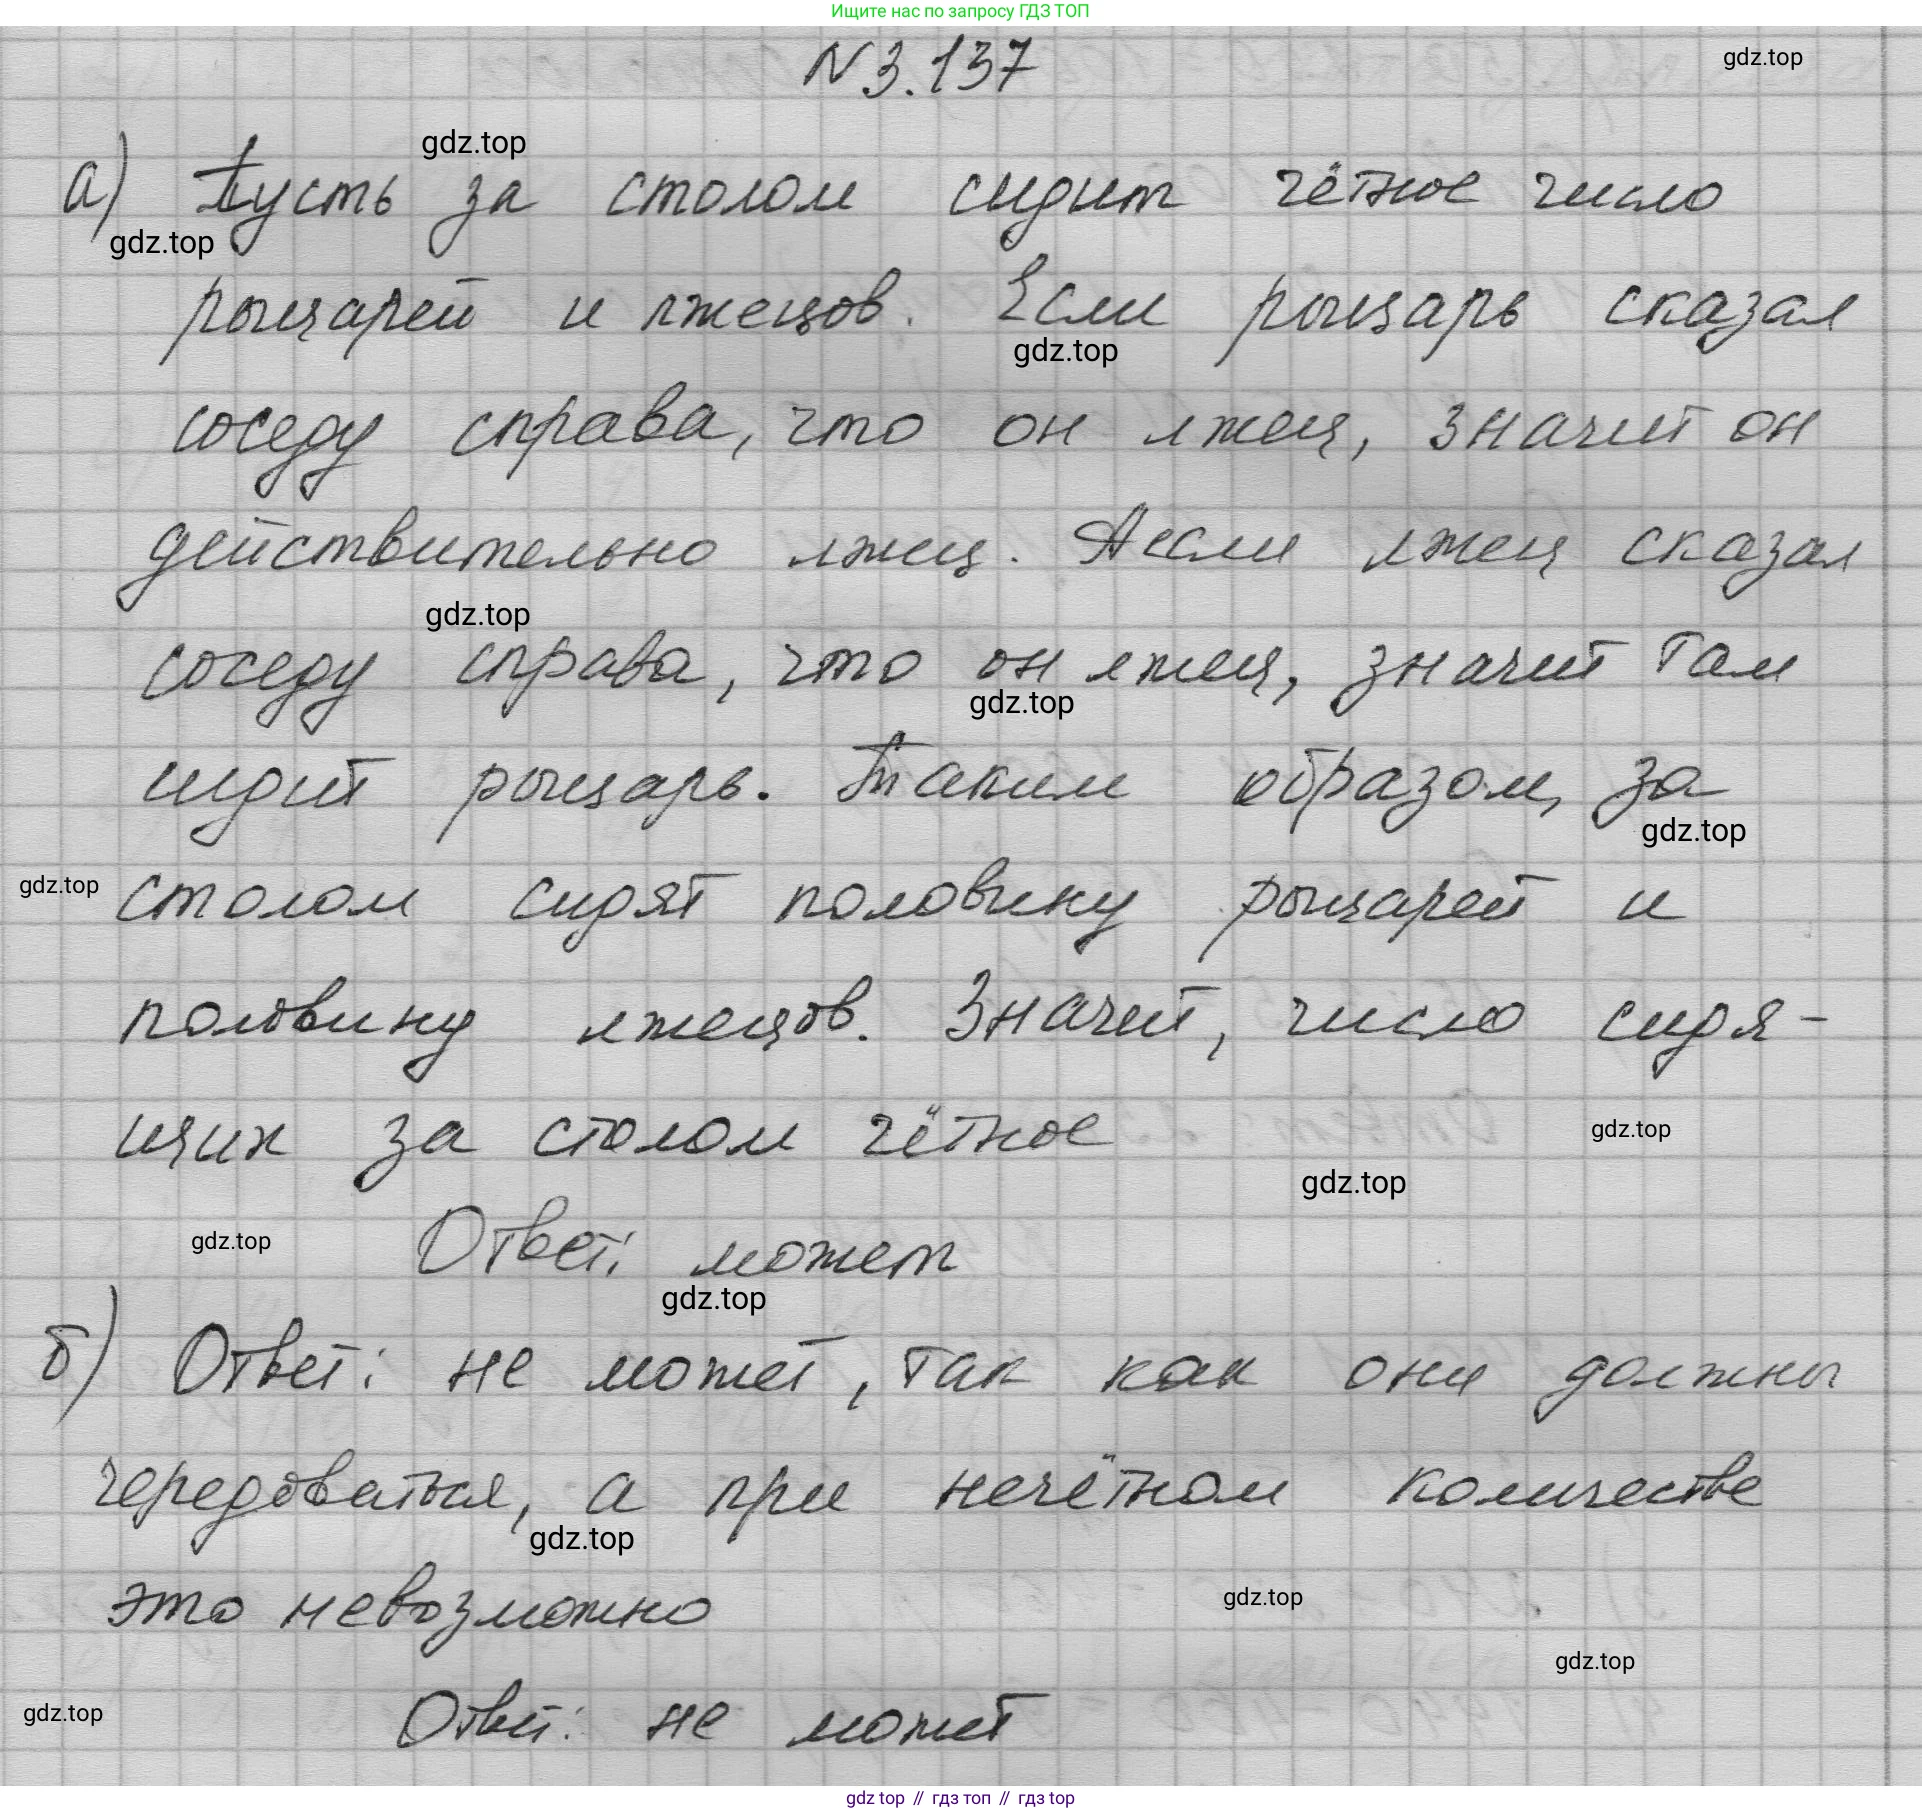 Ищите нас по запросу ГДЗ ТОП
N 3.137
gdz.top
gdz.top
а) Пусть за столом сидит чётное число
gdz.top
рыцарей и лжецов. Если рыцарь сказал
gdz.top
соседу справа, что он лжец, значит он
действительно лжец. А если лжец сказал
gdz.top
соседу справа, что он лжец, значит там
gdz.top
сидит рыцарь. Таким образом, за
gdz.top
gdz.top
столом сидят половину рыцарей и
половину лжецов. Значит, число сидя-
щих за столом чётное
gdz.top
gdz.top
gdz.top
Ответ: может
gdz.top
б) Ответ: не может, так как они должны
чередоваться, а при нечётном количестве
gdz.top
это невозможно
gdz.top
gdz.top
gdz.top
Ответ: не может
gdz top // гдз топ // гдз top